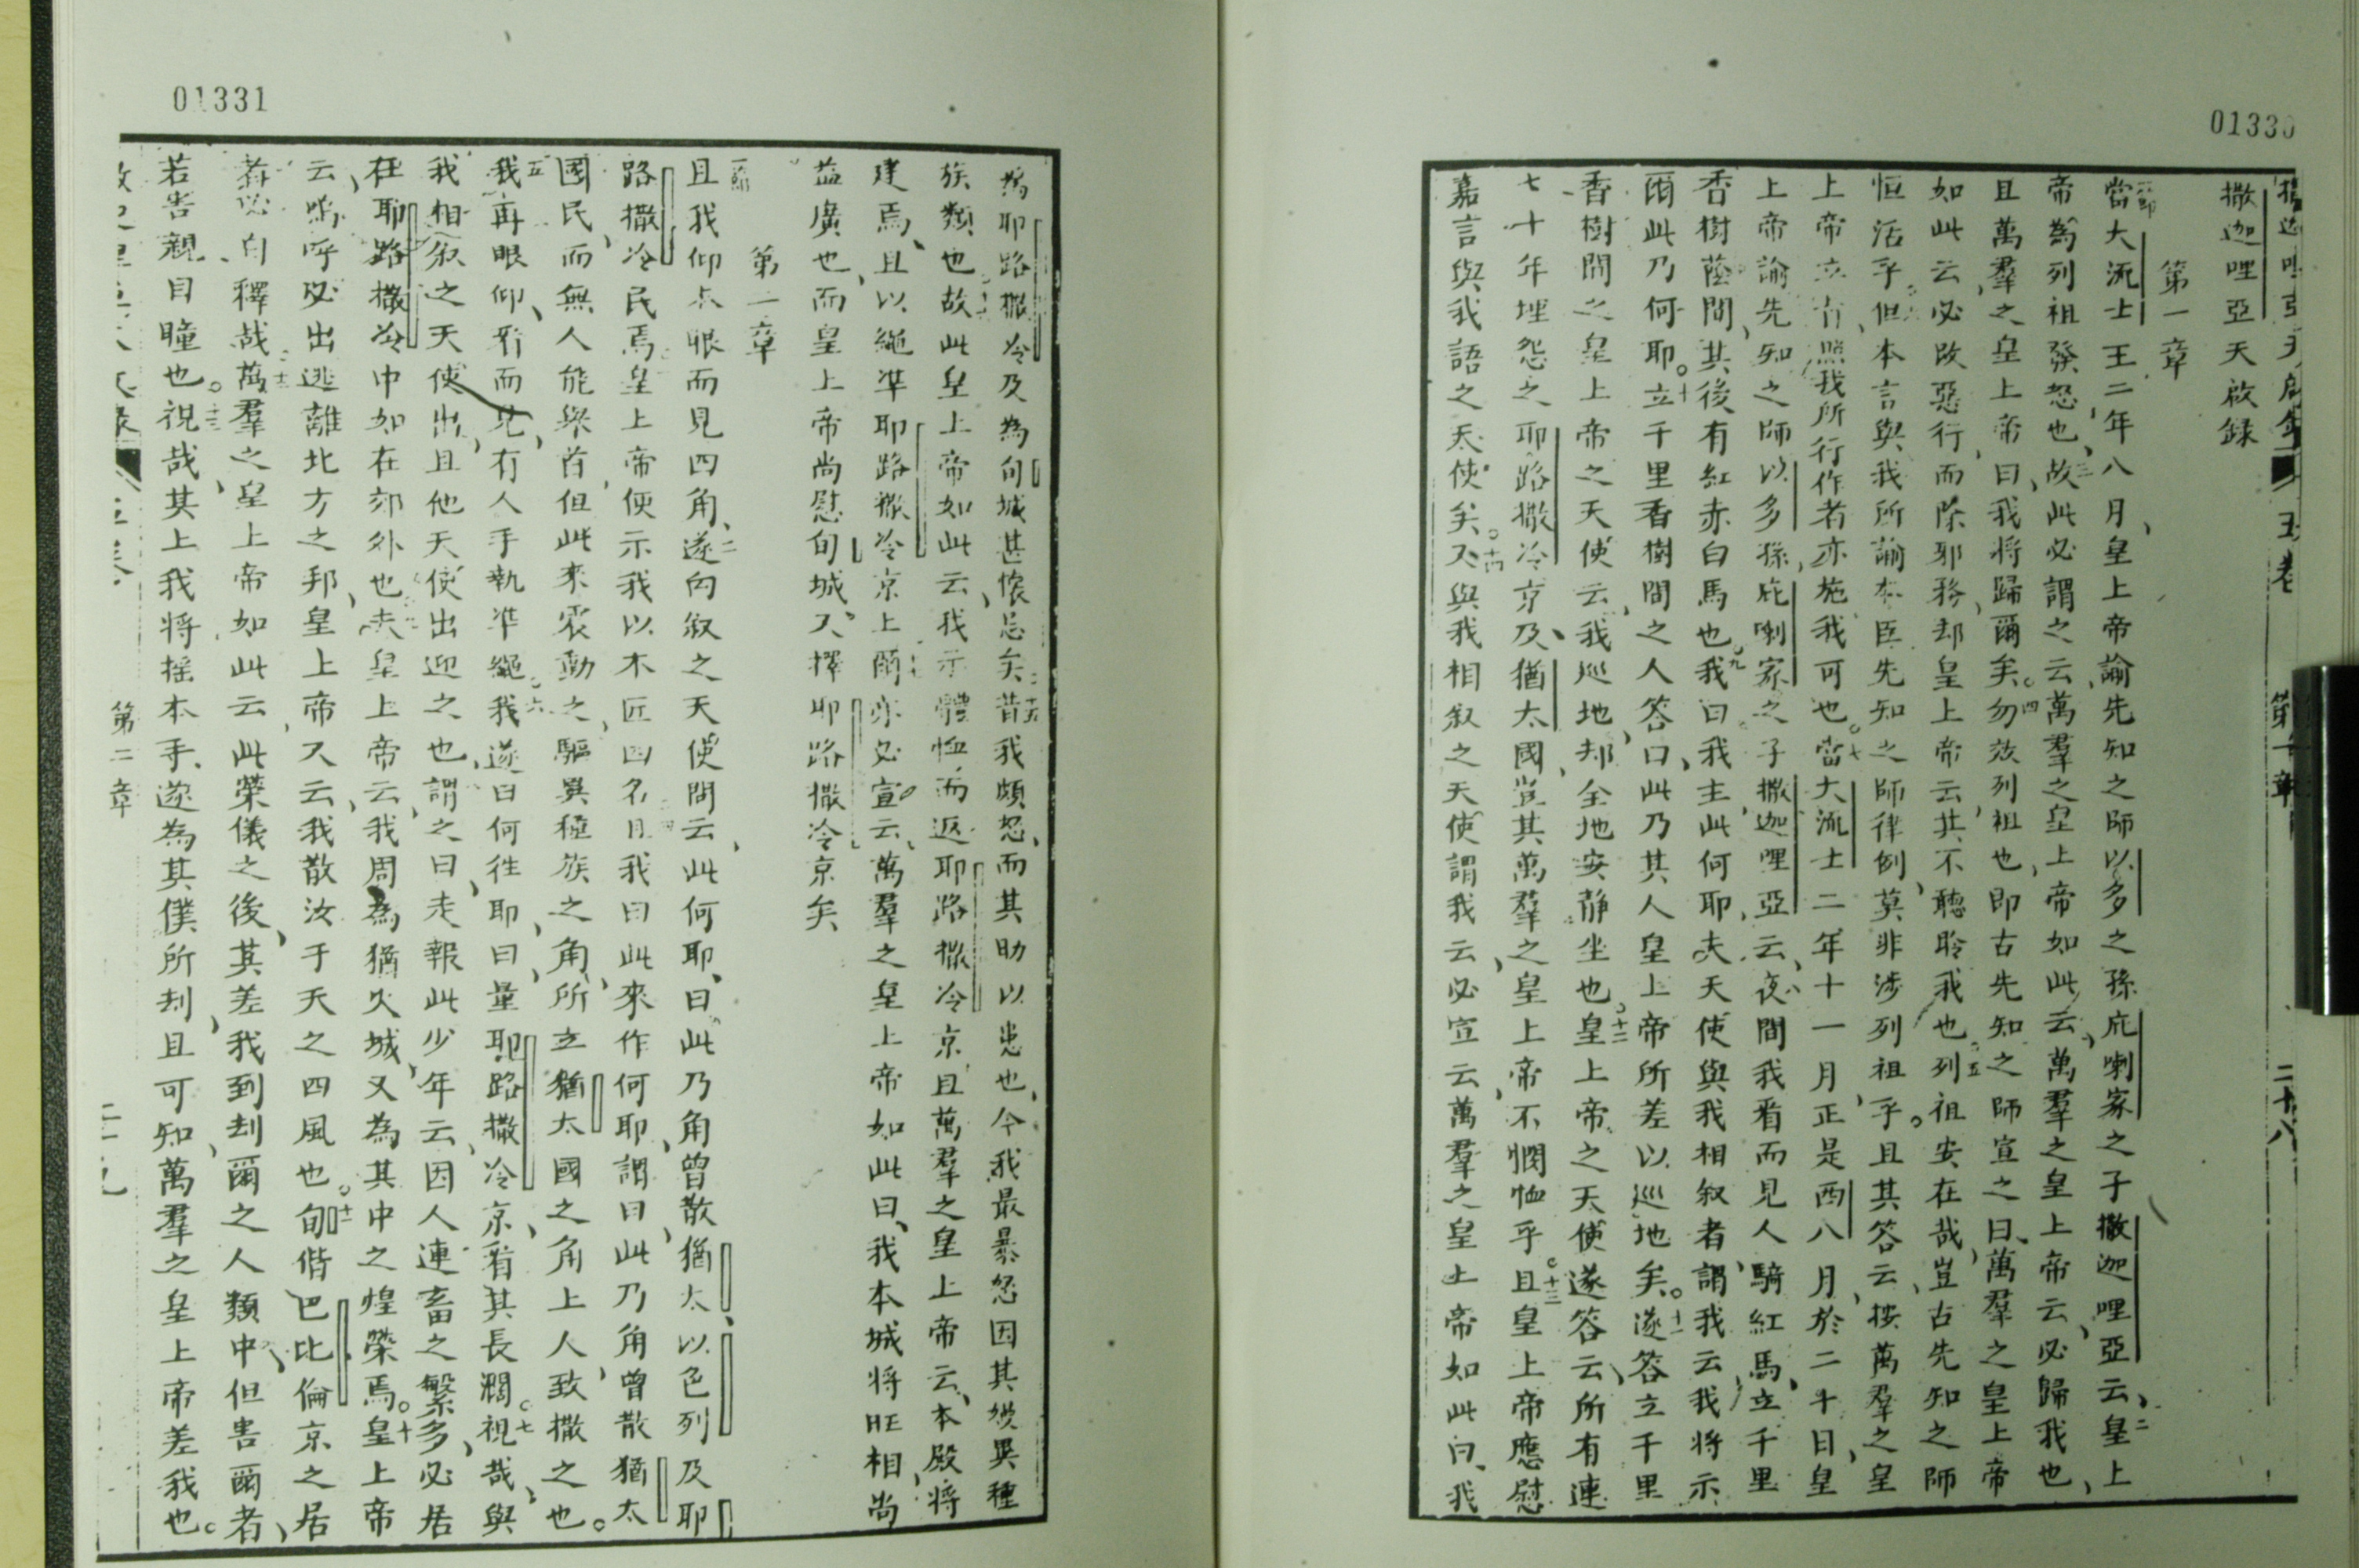 01330
撒迦哩亞天啟錄
第一章
一節
當大流士王二年八月、皇上帝諭先知之師以多之孫庇喇家之子撒迦哩亞云、二皇上
帝為列祖發怒也、三故此必謂之云萬羣之皇上帝如此云、萬羣之皇上帝云、必歸我也、
且萬羣之皇上帝曰、我將歸爾矣。四勿效列祖也、即古先知之師宣之曰、萬羣之皇上帝
如此云、必改惡行、而除邪務、却皇上帝云、其不聽聆我也。五列祖安在哉、豈古先知之師
恒活乎、但本言與我所諭本臣先知之師律例、莫非涉列祖乎。且其答云、按萬羣之皇
上帝立肯照我所行作者、亦施我可也。七當大流士二年十一月正是西八月於二十日、皇
上帝諭先知之師以多孫庇喇家之子撒迦哩亞云、夜間我看而見人騎紅馬、立千里
香樹蔭間、其後有紅赤白馬也。九我曰、我主此何耶、夫天使與我相叙者、謂我云、我將示
爾此乃何耶。十立千里香樹間之人答曰、此乃其人皇上帝所差以巡地矣。十一遂答立千里
香樹間之皇上帝之天使云、我巡地、却全地安靜坐也。十二皇上帝之天使遂答云、所有連
七十年埋怨之耶路撒冷京、及猶太國、豈其萬羣之皇上帝不憫恤乎。十三且皇上帝應慰
嘉言與我語之天使矣。十四又與我相叙之天使謂我云、必宣云、萬羣之皇上帝如此曰、我
第一章
二十八
01331
為耶路撒冷及為旬城甚懷忌矣。十五昔我頗怒、而其助以患也、今我最暴怒因其對異種
族類也。故此皇上帝如此云、我示體恤而返耶路撒冷京、且萬羣之皇上帝云、本殿將
建焉、且以繩準耶路撒冷京上爾亦必宣云、萬羣之皇上帝如此曰、我本城將旺相、尚
益廣也、而皇上帝尚慰旬城、又擇耶路撒冷京矣
第二章
一節
且我仰本眼而見四角、二遂向叙之天使問云、此何耶、曰、此乃角曾散猶太、以色列及耶
路撒冷民焉。三皇上帝便示我以木匠四名、且我曰此來作何耶、謂曰、此乃角曾散猶太
國民、而無人能舉首、但此來震動之、驅異種族之角、所立猶太國之角上人、致撒之也。
五我再眼仰、看而見、有人手執準繩。六我遂曰何往耶、曰、量耶路撒冷京、看其長濶。七視哉、與
我相叙之天使出、且他天使出迎之也、謂之曰、走報此少年云、因人連畜之繁多、必居
在耶路撒冷中如在郊外也。夫皇上帝云、我周為猶火城、又為其中之煌榮焉。十皇上帝
云嗚呼、必出逃離北方之邦、皇上帝又云、我散汝于天之四風也。十一旬偕巴比倫京之居
者必自釋哉。十二萬羣之皇上帝如此云、此榮儀之後、其差我到刦爾之人類中、但害爾者、
若害親目瞳也。十三視哉、其上我將搖本手、遂為其僕所刦、且可知萬羣之皇上帝差我也。
第二章